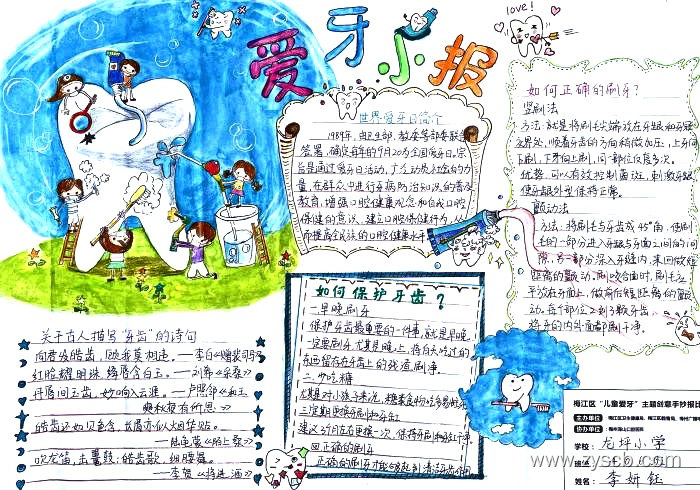 爱牙小报
love!
世界爱牙日简介
1989年,由卫生部、教委等部委联合
签署,确定每年的9月20为全国爱牙日。宗
旨是通过爱牙日活动,广泛动员社会的力
量,在群众中进行牙病防治知识的普及
教育,增强口腔健康观念和自我口腔
保健的意识,建立口腔保健行为,从
而提高全民族的口腔健康水平
如何正确的刷牙?
竖刷法
方法:就是将刷毛尖端放在牙龈和牙冠
交界处,顺着牙齿的方向稍微加压,上牙向
下刷,下牙向上刷,同一部位反复多次。
优势:可以有效控制菌斑,刺激牙龈,
使牙龈外型保持正常。
颤动法
方法:将刷毛与牙齿成45°角,使刷
毛的一部分进入牙龈与牙面之间的间
隙,另一部分深入牙缝内,来回做短
距离的颤动。刷咬合面时,刷毛应
平放在牙面上,做前后短距离的颤
动。每个部位2到3颗牙齿
将牙的内外面都刷干净。
如何保护牙齿?
一.早晚刷牙
保护牙齿最重要的一件事,就是早晚
一定要刷牙,尤其是晚上,将白天吃过的
东西留存在牙齿上的残渣刷净。
二.少吃糖
尤其对小孩子来说,糖果
三定期更换刷和牙缸
建议3个月左右更换一次,保持牙刷和牙缸干净。
四正确的刷牙
正确的刷牙才能够起到清洁牙齿作用
关于古人描写“牙齿”的诗句
——李白《赠裴司马》
红脸耀明珠,绛唇含白玉。——刘希夷《采桑》
丹唇间玉齿,妙响入云涯。——卢照邻《和王
奭秋夜有所思》
皓齿还如贝色含,长眉亦似烟华贴。
——陆龟蒙《陌上桑》
吹龙笛,击鼍鼓;皓齿歌,细腰舞。
——李贺《将进酒》
梅江区“儿童爱牙”主题创意手抄报比
主办单位:
协办单位:
学校: 龙坪小学
班级:
姓名: 李妍钰
www.yscb.com